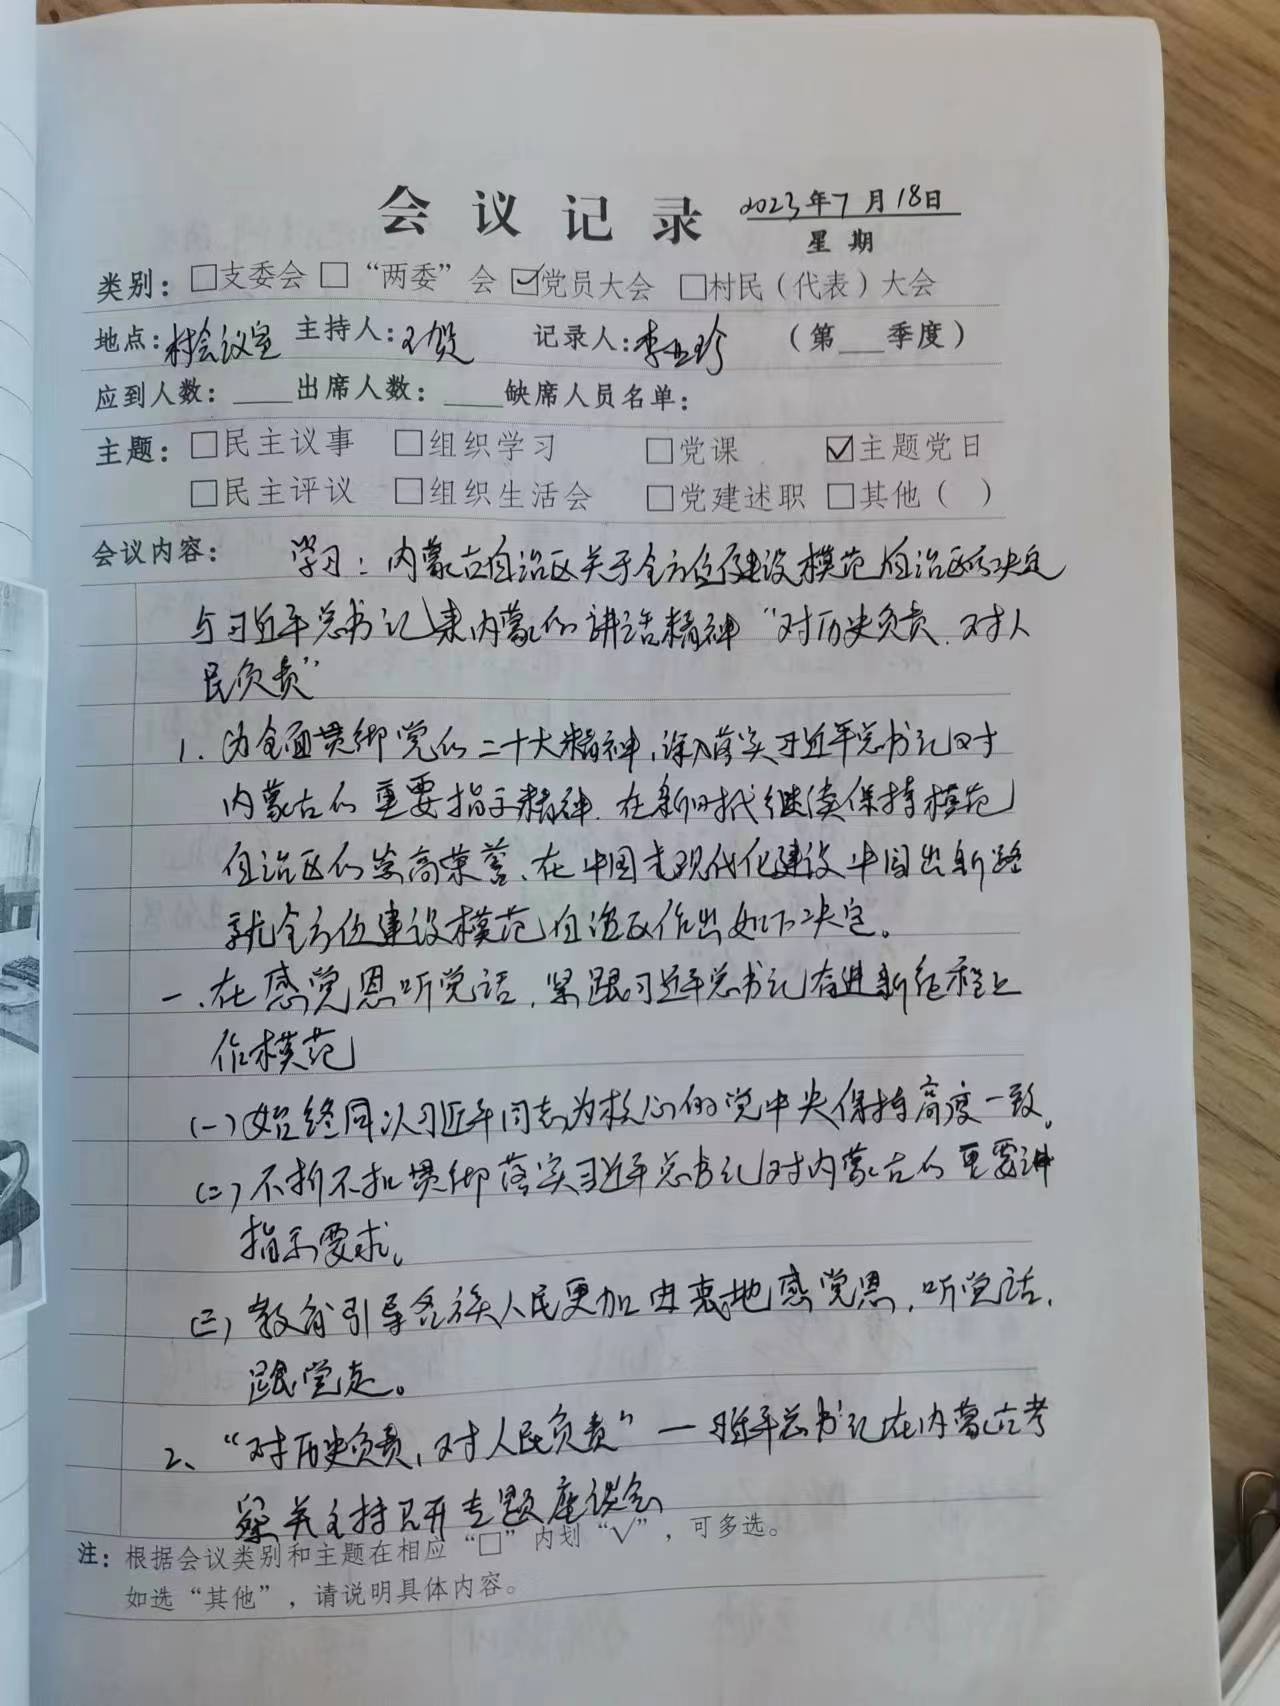 会议记录 2023年7月18日
星期
类别：□支委会 □“两委”会 ☑党员大会 □村民（代表）大会
地点：村会议室 主持人：王贺 记录人：李亚珍 （第___季度）
应到人数：____出席人数：____缺席人员名单：
主题：□民主议事 □组织学习 □党课 ☑主题党日
□民主评议 □组织生活会 □党建述职 □其他（ ）
会议内容： 学习：内蒙古自治区关于全方位建设模范自治区的决定
与习近平总书记来内蒙的讲话精神“对历史负责.对人
民负责”
1. 为全面贯彻党的二十大精神，深入落实习近平总书记对
内蒙古的重要指示精神.在新时代继续保持模范
自治区的崇高荣誉、在中国式现代化建设中闯出新路
就全方位建设模范自治区作出如下决定。
一、在感党恩听党话，紧跟习近平总书记奋进新征程上
作模范
(一)始终同以习近平同志为核心的党中央保持高度一致。
(二)不折不扣贯彻落实习近平总书记对内蒙古的重要讲
指示要求。
(三)教育引导各族人民更加由衷地感党恩，听党话，
跟党走。
2、“对历史负责，对人民负责”一习近平总书记在内蒙古考
察并主持召开专题座谈会
注：根据会议类别和主题在相应“□”内划“√”，可多选。
如选“其他”，请说明具体内容。